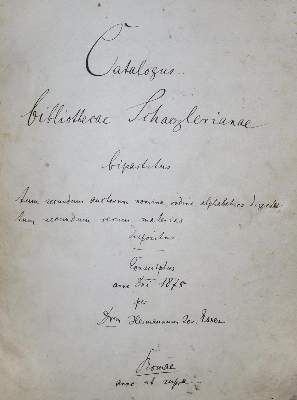 Catalogus
bibliothecae Schaezlerianae
bipartitus
tum secundum auctorum nomina ordine alphabetico digestus
tum secundum rerum materias
dispositus
Conscriptus
anno Dni 1875
per
Drm Hermannum Jos.
Romae
anno ut supra